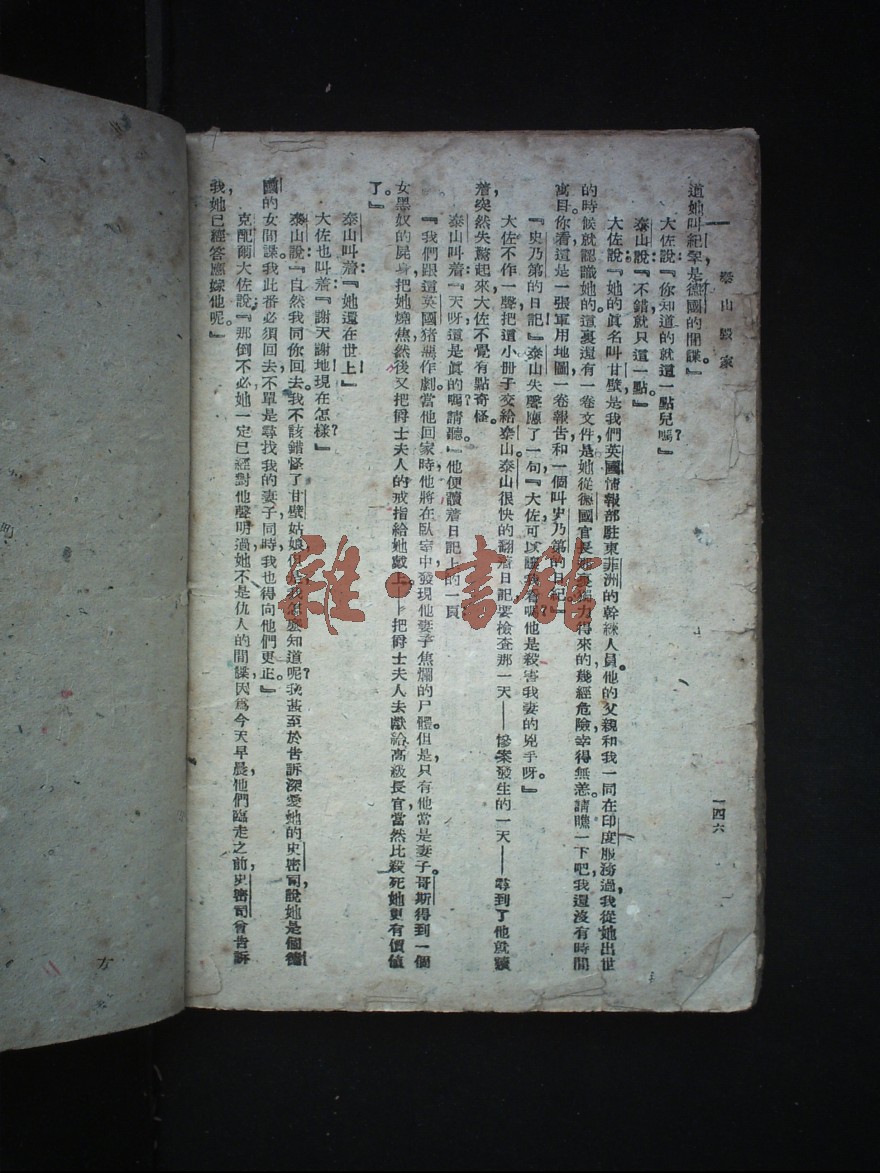 泰山毀家
一四六
道她叫紀爾，是德國的間諜。』
大佐說：『你知道的就這一點兒嗎？』
泰山說：『不錯，就只這一點。』
大佐說：『她的眞名叫甘壁，是我們英國情報部駐東非洲的幹練人員。他的父親和我一同在印度服務過，我從她出世
的時候就認識她的。這裏還有一卷文件，是她從德國官長處 力得來的，幾經危險，幸得無恙。請瞧一下吧，我還沒有時間
寓目。你看這是一張軍用地圖，一卷報告，和一個叫史乃第的日記。』
『史乃第的日記』泰山失聲應了一句，『大佐可以讓我看嗎？他是殺害我妻的兇手呀。』
大佐不作一聲，把這小册子交給泰山。泰山很快的翻着日記，要檢查那一天——慘案發生的一天——尋到了他就讀
着，突然失驚起來，大佐不覺有點奇怪。
泰山叫着：『天呀，這是眞的嗎？請聽。』他便讀着日記上的一頁：
『我們跟這英國猪惡作劇。當他回家時，他將在臥室中發現他妻子焦爛的尸體。但是只有他當是妻子，哥斯得到一個
女黑奴的屍身，把她燒焦，然後又把爵士夫人的戒指給她戴上——把爵士夫人去獻給高級長官，當然比殺死她更有價値
了。』
泰山叫着：『她還在世上』
大佐也叫着：『謝天謝地，現在怎樣？』
泰山說：『自然我同你回去，我不該錯怪了甘壁姑娘，但是我怎麼知道呢？我甚至於告訴深愛她的史密司，說她是個德
國的女間諜。我此番必須回去，不單是尋找我的妻子，同時我也得向他們更正。』
克配爾大佐說：『那倒不必，她一定已經對他聲明過她不是仇人的間諜，因爲今天早晨，他們臨走之前，史密司曾告訴
我，她已經答應嫁他呢。』
雜·書館